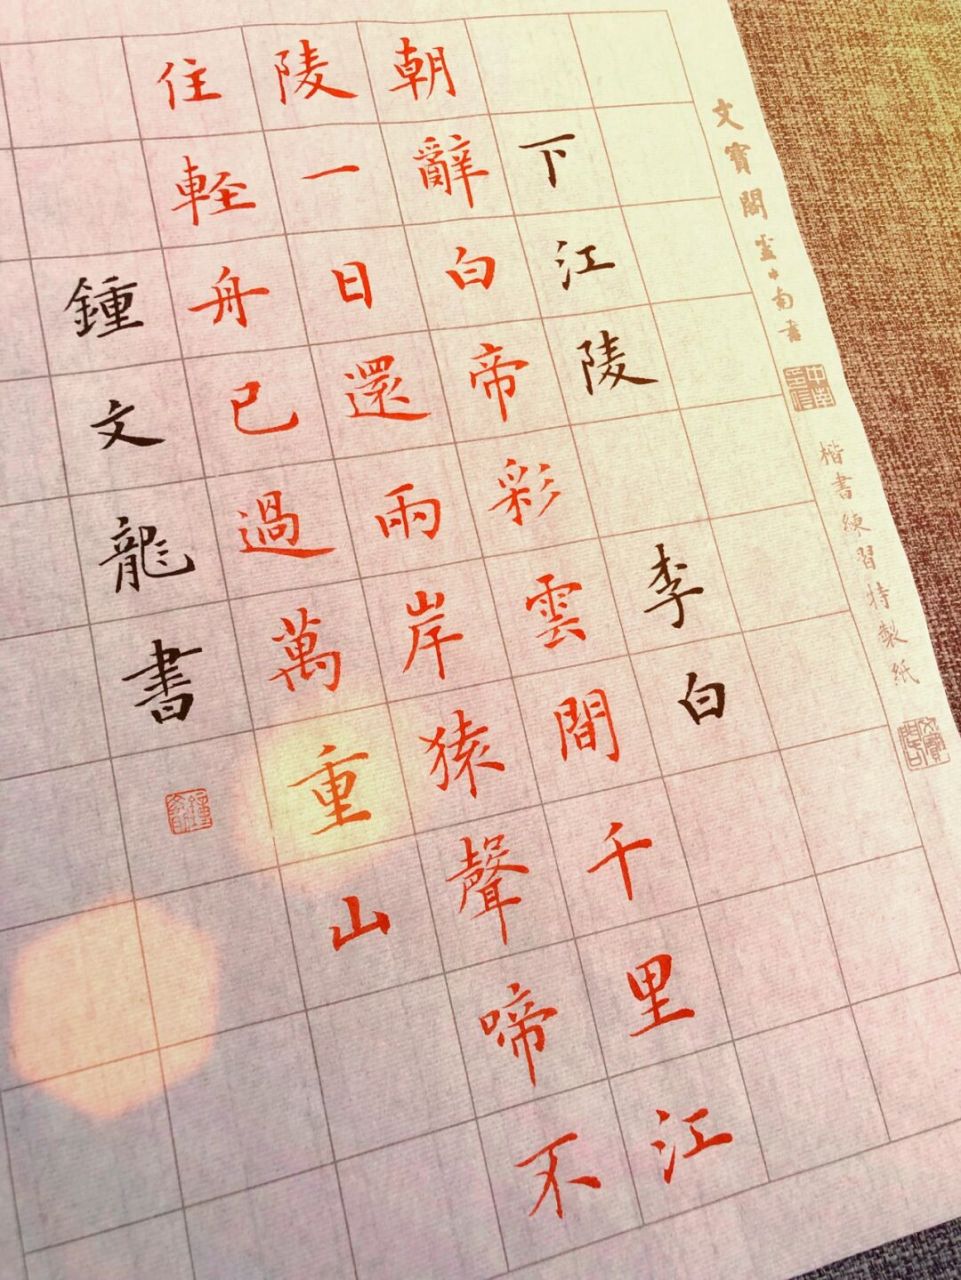 文寶閣孟中南書
楷書練習特製紙
下江陵
李白
朝辭白帝彩雲間千里江
陵一日還兩岸猿聲啼不
住輕舟已過萬重山
鍾文龍書